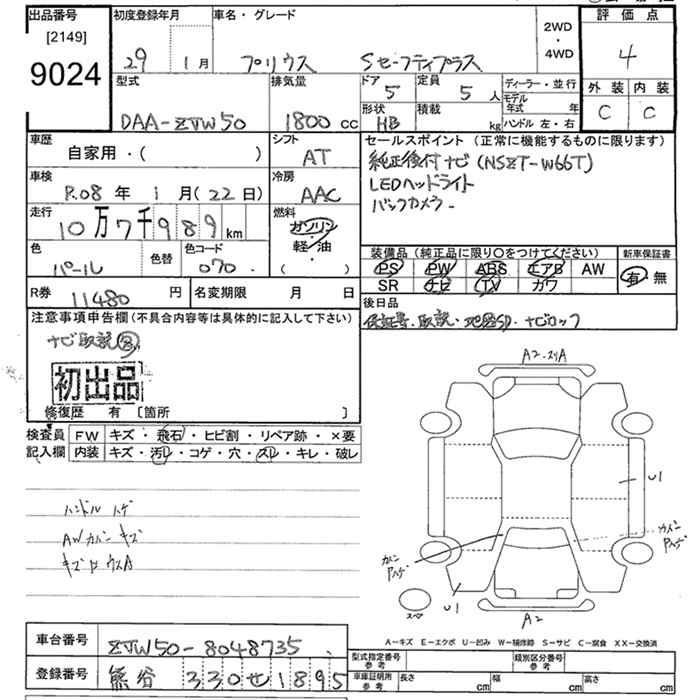 出品番号
[2149]
9024
初度登録年月
29 1月
車名・グレード
プリウス Sセーフティプラス
2WD
・
4WD
評価点
4
外装 内装
C C
型式
DAA-ZVW50
排気量
1800cc
ドア
5
定員
5人
形状
HB
積載
kg
ディーラー・並行
モデル年式 年
ハンドル 左・右
車歴
自家用・( )
シフト
AT
車検
R.08年 1月(22日)
冷房
AAC
走行
10万7千989km
燃料
ガソリン
軽・油
( )
色
パール
色替
色コード
070
R券
11480円
名変期限 月 日
セールスポイント (正常に機能するものに限ります)
純正後付ナビ(NSZT-W66T)
LEDヘッドライト
バックカメラー
装備品 (純正品に限り〇をつけてください)
PS PW ABS エアB AW
SR ナビ TV カワ
新車保証書
有 無
後日品
保証書・取説・地図SD・ナビカップ
注意事項申告欄(不具合内容等は具体的に記入して下さい)
ナビ取説
初出品
修復歴 有 [箇所 ]
検査員記入欄
FW キズ・飛石・ヒビ割・リペア跡・×要
内装 キズ・汚レ・コゲ・穴・スレ・キレ・破レ
ハンドル ハゲ
AWカバー キズ
A2.スリA
U1
カバー
カバー
U1
スペア
A2
A-キズ E-エクボ U-凹み W-補修跡 S-サビ C-腐食 XX-交換済
車台番号
ZVW50-8048735
登録番号
熊谷 330せ1895
型式指定番号 参考
類別区分番号 参考
車庫証明用 参考
長さ cm 幅 cm 高さ cm